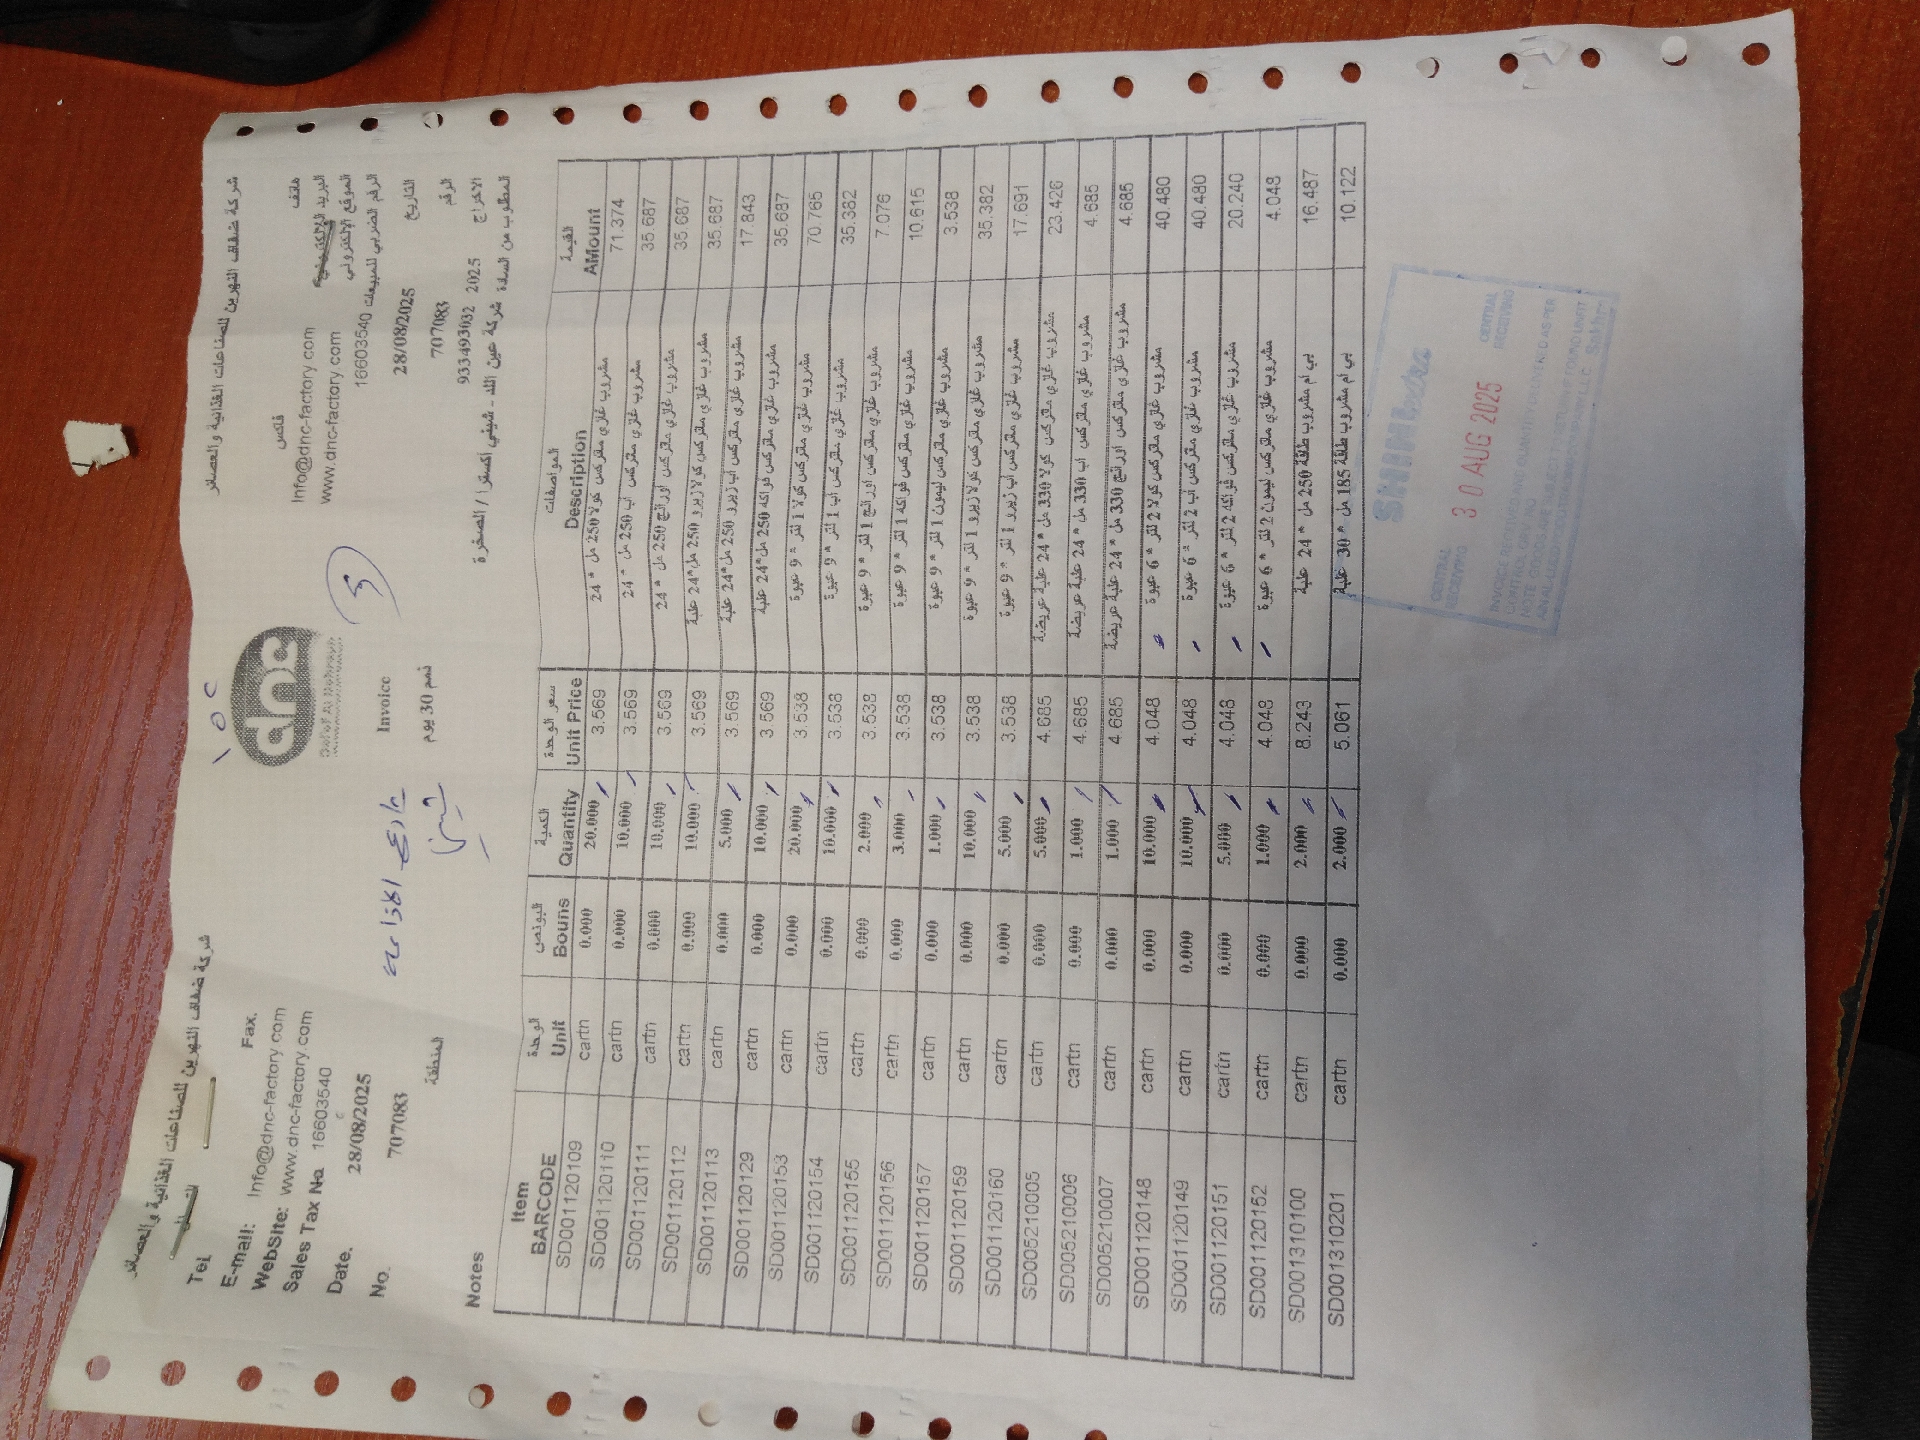 شركة ضفاف النهرين للصناعات الغذائية والعصائر
شركة ضفاف النهرين للصناعات الغذائية والعصائر
dnc
Tel. Fax. فاكس هاتف
E-mail: Info@dnc-factory.com Info@dnc-factory.com البريد الإلكتروني
WebSite: www.dnc-factory.com www.dnc-factory.com الموقع الإلكتروني
Sales Tax No 16603540 16603540 الرقم الضريبي للمبيعات
Date. 28/08/2025 Invoice 28/08/2025 التاريخ
No. 707083 ذمم 30 يوم 707083 الرقم
المنطقة 933493032 2025 الاخراج
المطلوب من السادة شركة عين الله - شيني اكسترا / الصخرة
Notes
الوحدة البونص الكمية سعر الوحدة المواصفات القيمة
Item BARCODE Unit Bouns Quantity Unit Price Description AMount
SD001120109 cartn 0.000 20.000 3.569 مشروب غازي متركس كولا 250 مل * 24 71.374
SD001120110 cartn 0.000 10.000 3.569 مشروب غازي متركس اب 250 مل * 24 35.687
SD001120111 cartn 0.000 10.000 3.569 مشروب غازي متركس اورانج 250 مل * 24 35.687
SD001120112 cartn 0.000 10.000 3.569 مشروب غازي متركس كولا زيرو 250 مل*24 علبة 35.687
SD001120113 cartn 0.000 5.000 3.569 مشروب غازي متركس اب زيرو 250 مل*24 علبة 17.843
SD001120129 cartn 0.000 10.000 3.569 مشروب غازي متركس فواكه 250 مل*24 علبة 35.687
SD001120153 cartn 0.000 20.000 3.538 مشروب غازي متركس كولا 1 لتر * 9 عبوة 70.765
SD001120154 cartn 0.000 10.000 3.538 مشروب غازي متركس اب 1 لتر * 9 عبوة 35.382
SD001120155 cartn 0.000 2.000 3.538 مشروب غازي متركس اورانج 1 لتر * 9 عبوة 7.076
SD001120156 cartn 0.000 3.000 3.538 مشروب غازي متركس فواكه 1 لتر * 9 عبوة 10.615
SD001120157 cartn 0.000 1.000 3.538 مشروب غازي متركس ليمون 1 لتر * 9 عبوة 3.538
SD001120159 cartn 0.000 10.000 3.538 مشروب غازي متركس كولا زيرو 1 لتر * 9 عبوة 35.382
SD001120160 cartn 0.000 5.000 3.538 مشروب غازي متركس اب زيرو 1 لتر * 9 عبوة 17.691
SD005210005 cartn 0.000 5.000 4.685 مشروب غازي متركس كولا 330 مل * 24 علبة عريضة 23.426
SD005210006 cartn 0.000 1.000 4.685 مشروب غازي متركس اب 330 مل * 24 علبة عريضة 4.685
SD005210007 cartn 0.000 1.000 4.685 مشروب غازي متركس اورانج 330 مل * 24 علبة عريضة 4.685
SD001120148 cartn 0.000 10.000 4.048 مشروب غازي متركس كولا 2 لتر * 6 عبوة 40.480
SD001120149 cartn 0.000 10.000 4.048 مشروب غازي متركس اب 2 لتر * 6 عبوة 40.480
SD001120151 cartn 0.000 5.000 4.048 مشروب غازي متركس فواكه 2 لتر * 6 عبوة 20.240
SD001120152 cartn 0.000 1.000 4.048 مشروب غازي متركس ليمون 2 لتر * 6 عبوة 4.048
SD001310100 cartn 0.000 2.000 8.243 بي ام مشروب طاقة 250 مل * 24 علبة 16.487
SD001310201 cartn 0.000 2.000 5.061 بي ام مشروب طاقة 185 مل *30 علبة 10.122
CENTRAL RECEIVING
CENTRAL RECEIVING
30 AUG 2025